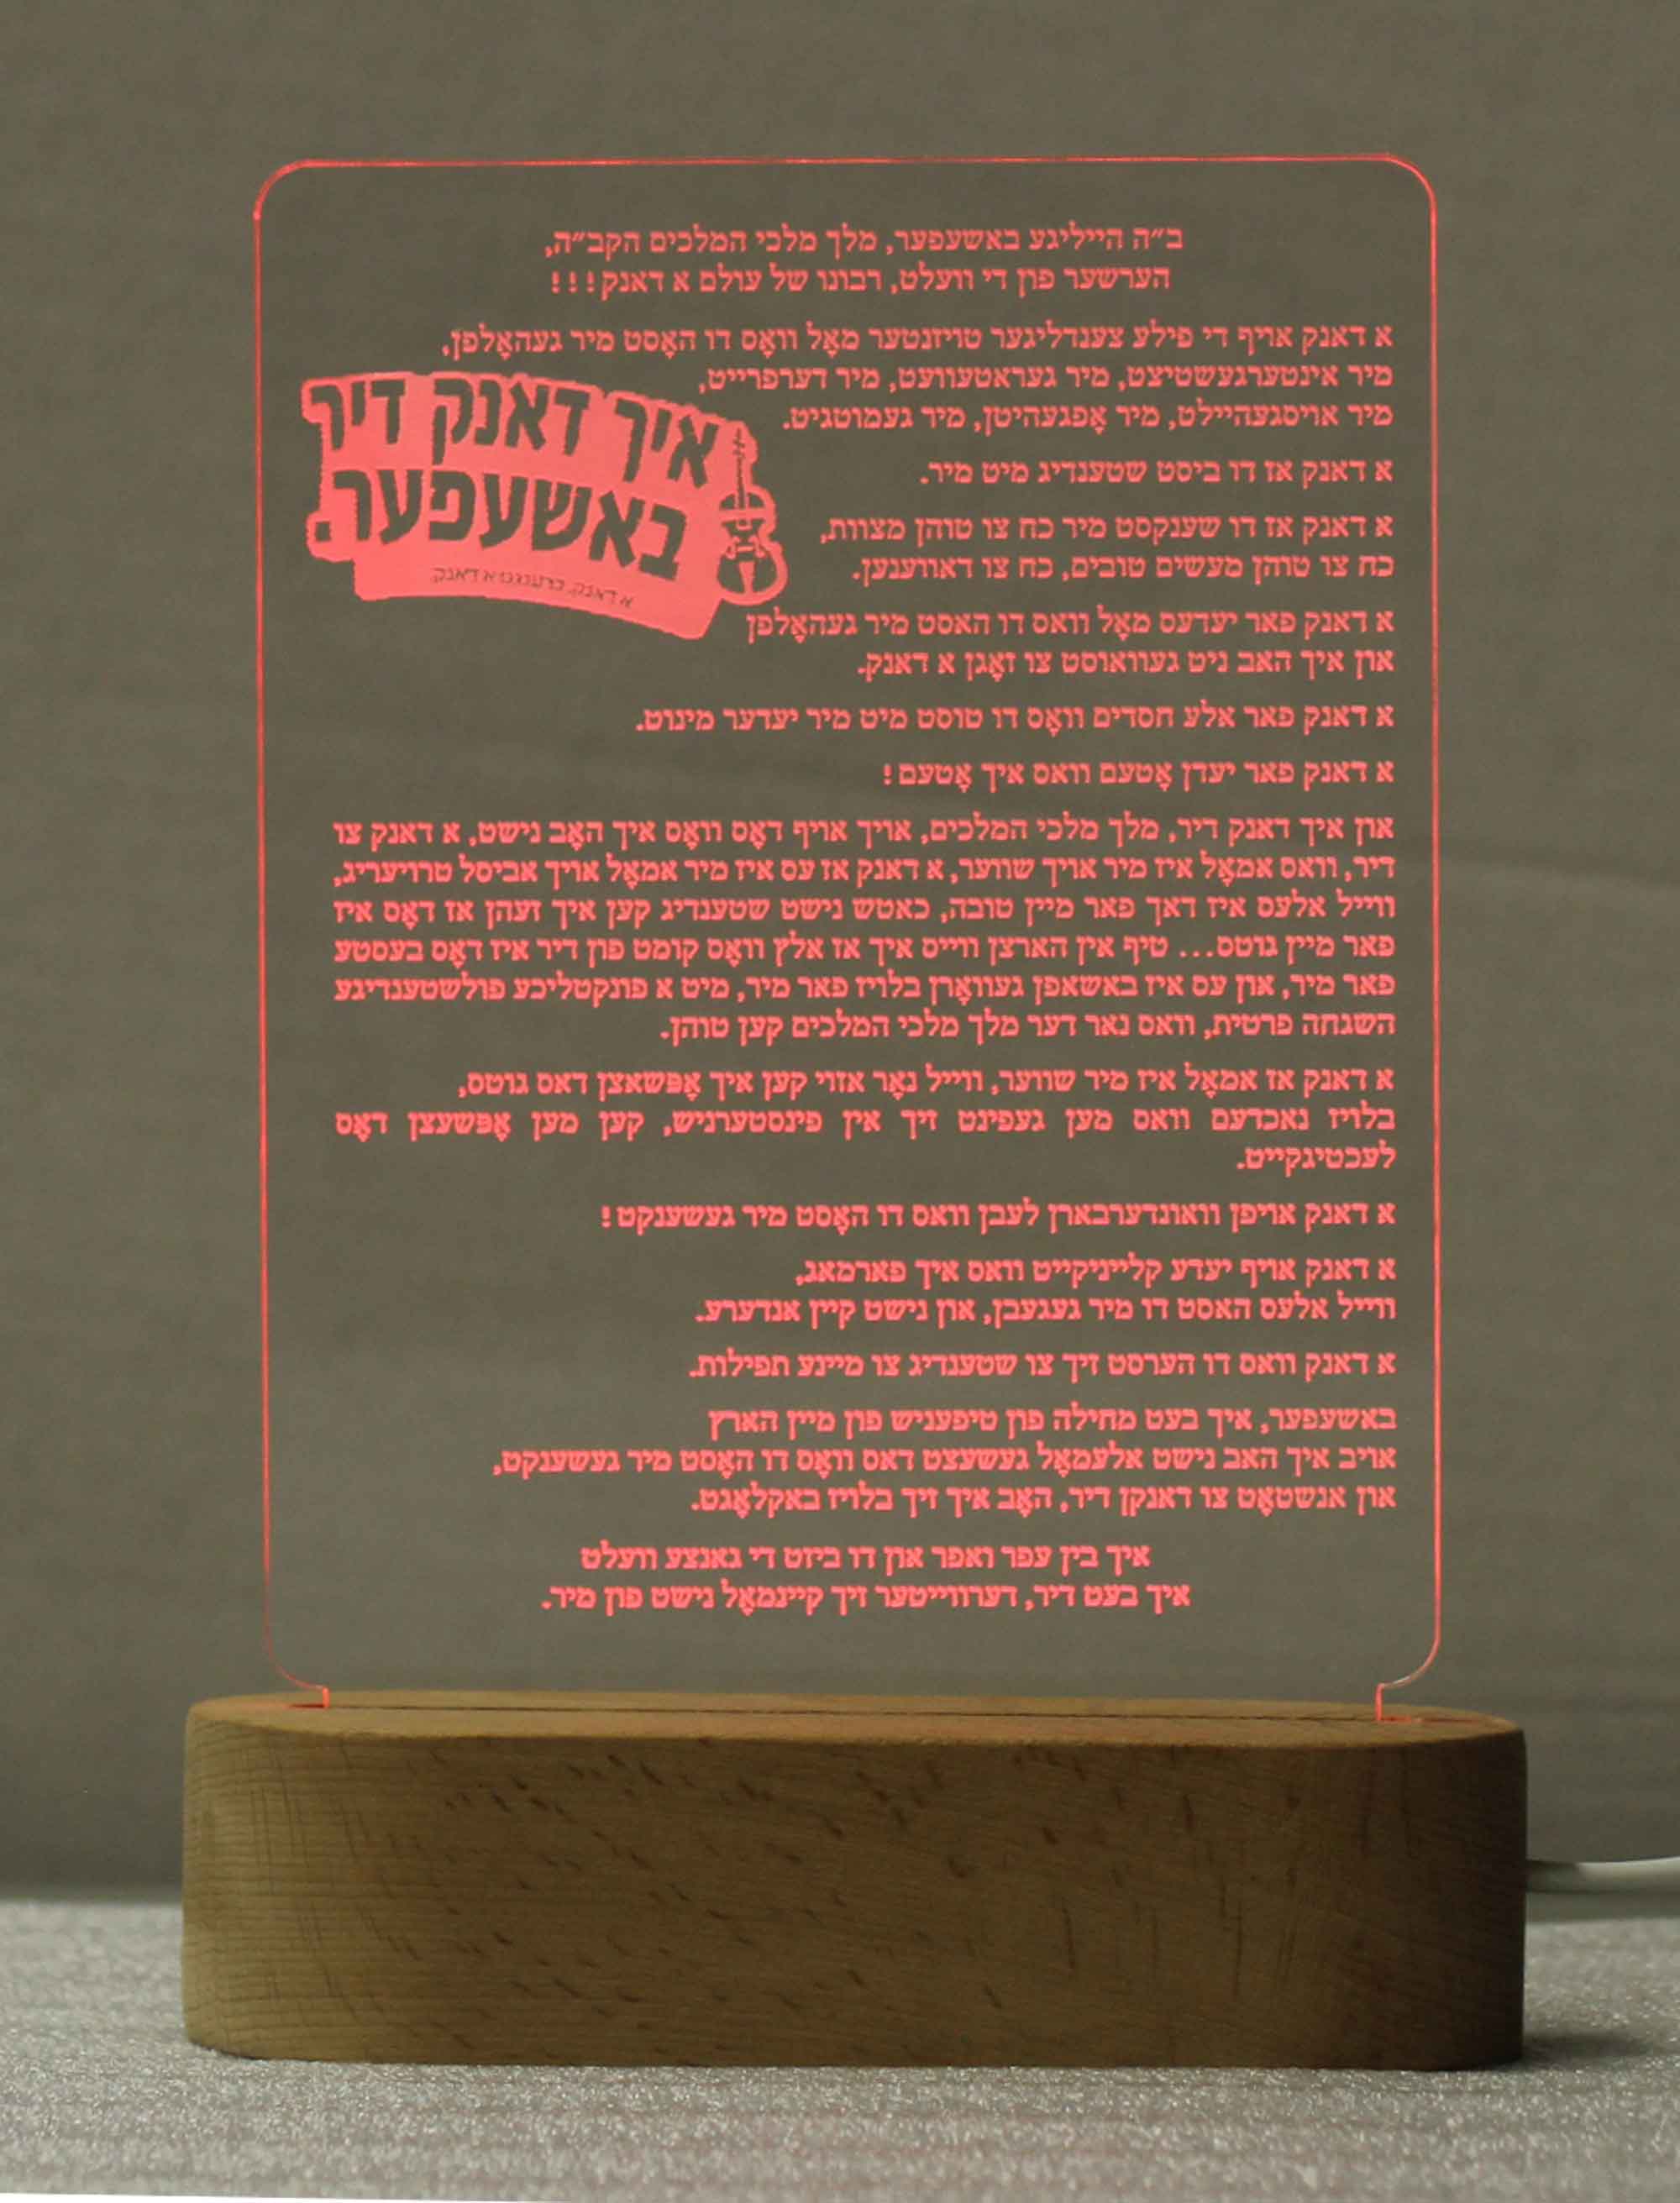 ב״ה הייליגע באשעפער, מלך מלכי המלכים הקב״ה,
הערשער פון די וועלט, רבונו של עולם א דאנק!!!
א דאנק אויף די פילע צענדליגער טויזנטער מאָל וואָס דו האָסט מיר געהאָלפן,
מיר אינטערגעשטיצט, מיר געראטעוועט, מיר דערפרייט,
מיר אויסגעהיילט, מיר אָפגעהיטן, מיר געמוטגיט.
איך דאנק דיר
באשעפער.
א דאנק, ברענגט א דאנק
א דאנק אז דו ביסט שטענדיג מיט מיר.
א דאנק אז דו שענקסט מיר כח צו טוהן מצוות,
כח צו טוהן מעשים טובים, כח צו דאווענען.
א דאנק פאר יעדעס מאָל וואס דו האסט מיר געהאָלפן
און איך האב ניט געוואוסט צו זאָגן א דאנק.
א דאנק פאר אלע חסדים וואָס דו טוסט מיט מיר יעדער מינוט.
א דאנק פאר יעדן אָטעם וואס איך אָטעם!
און איך דאנק דיר, מלך מלכי המלכים, אויך אויף דאָס וואָס איך האָב נישט, א דאנק צו
דיר, וואס אמאָל איז מיר אויך שווער, א דאנק אז עס איז מיר אמאָל אויך אביסל טרויעריג,
ווייל אלעס איז דאך פאר מיין טובה, כאטש נישט שטענדיג קען איך זעהן אז דאָס איז
פאר מיין גוטס... טיף אין הארצן ווייס איך אז אלץ וואָס קומט פון דיר איז דאָס בעסטע
פאר מיר, און עס איז באשאפן געוואָרן בלויז פאר מיר, מיט א פונקטליכע פולשטענדיגע
השגחה פרטית, וואס נאר דער מלך מלכי המלכים קען טוהן.
א דאנק אז אמאָל איז מיר שווער, ווייל נאָר אזוי קען איך אָפּשאצן דאס גוטס,
בלויז נאכדעם וואס מען געפינט זיך אין פינסטערניש, קען מען אָפּשעצן דאָס
לעכטיגקייט.
א דאנק אויפן וואונדערבארן לעבן וואס דו האָסט מיר געשענקט!
א דאנק אויף יעדע קלייניקייט וואס איך פארמאג,
ווייל אלעס האסט דו מיר געגעבן, און נישט קיין אנדערע.
א דאנק וואס דו הערסט זיך צו שטענדיג צו מיינע תפילות.
באשעפער, איך בעט מחילה פון טיפעניש פון מיין הארץ
אויב איך האב נישט אלעמאָל געשעצט דאס וואָס דו האָסט מיר געשענקט,
און אנשטאָט צו דאנקן דיר, האָב איך זיך בלויז באקלאָגט.
איך בין עפר ואפר און דו ביזט די גאנצע וועלט
איך בעט דיר, דערווייטער זיך קיינמאָל נישט פון מיר.